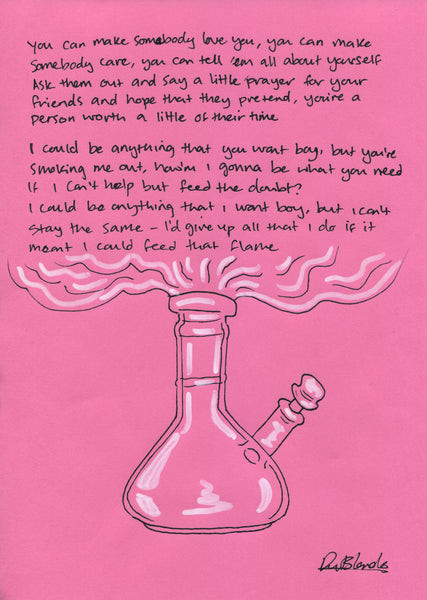 You can make somebody love you, you can make
somebody care, you can tell 'em all about yourself
Ask them out and say a little prayer for your
friends and hope that they pretend, you're a
person worth a little of their time
I could be anything that you want boy, but you're
smoking me out, how'm I gonna be what you need
If I can't help but feed the doubt?
I could be anything that I want boy, but I can't
stay the same - I'd give up all that I do if it
meant I could feed that flame